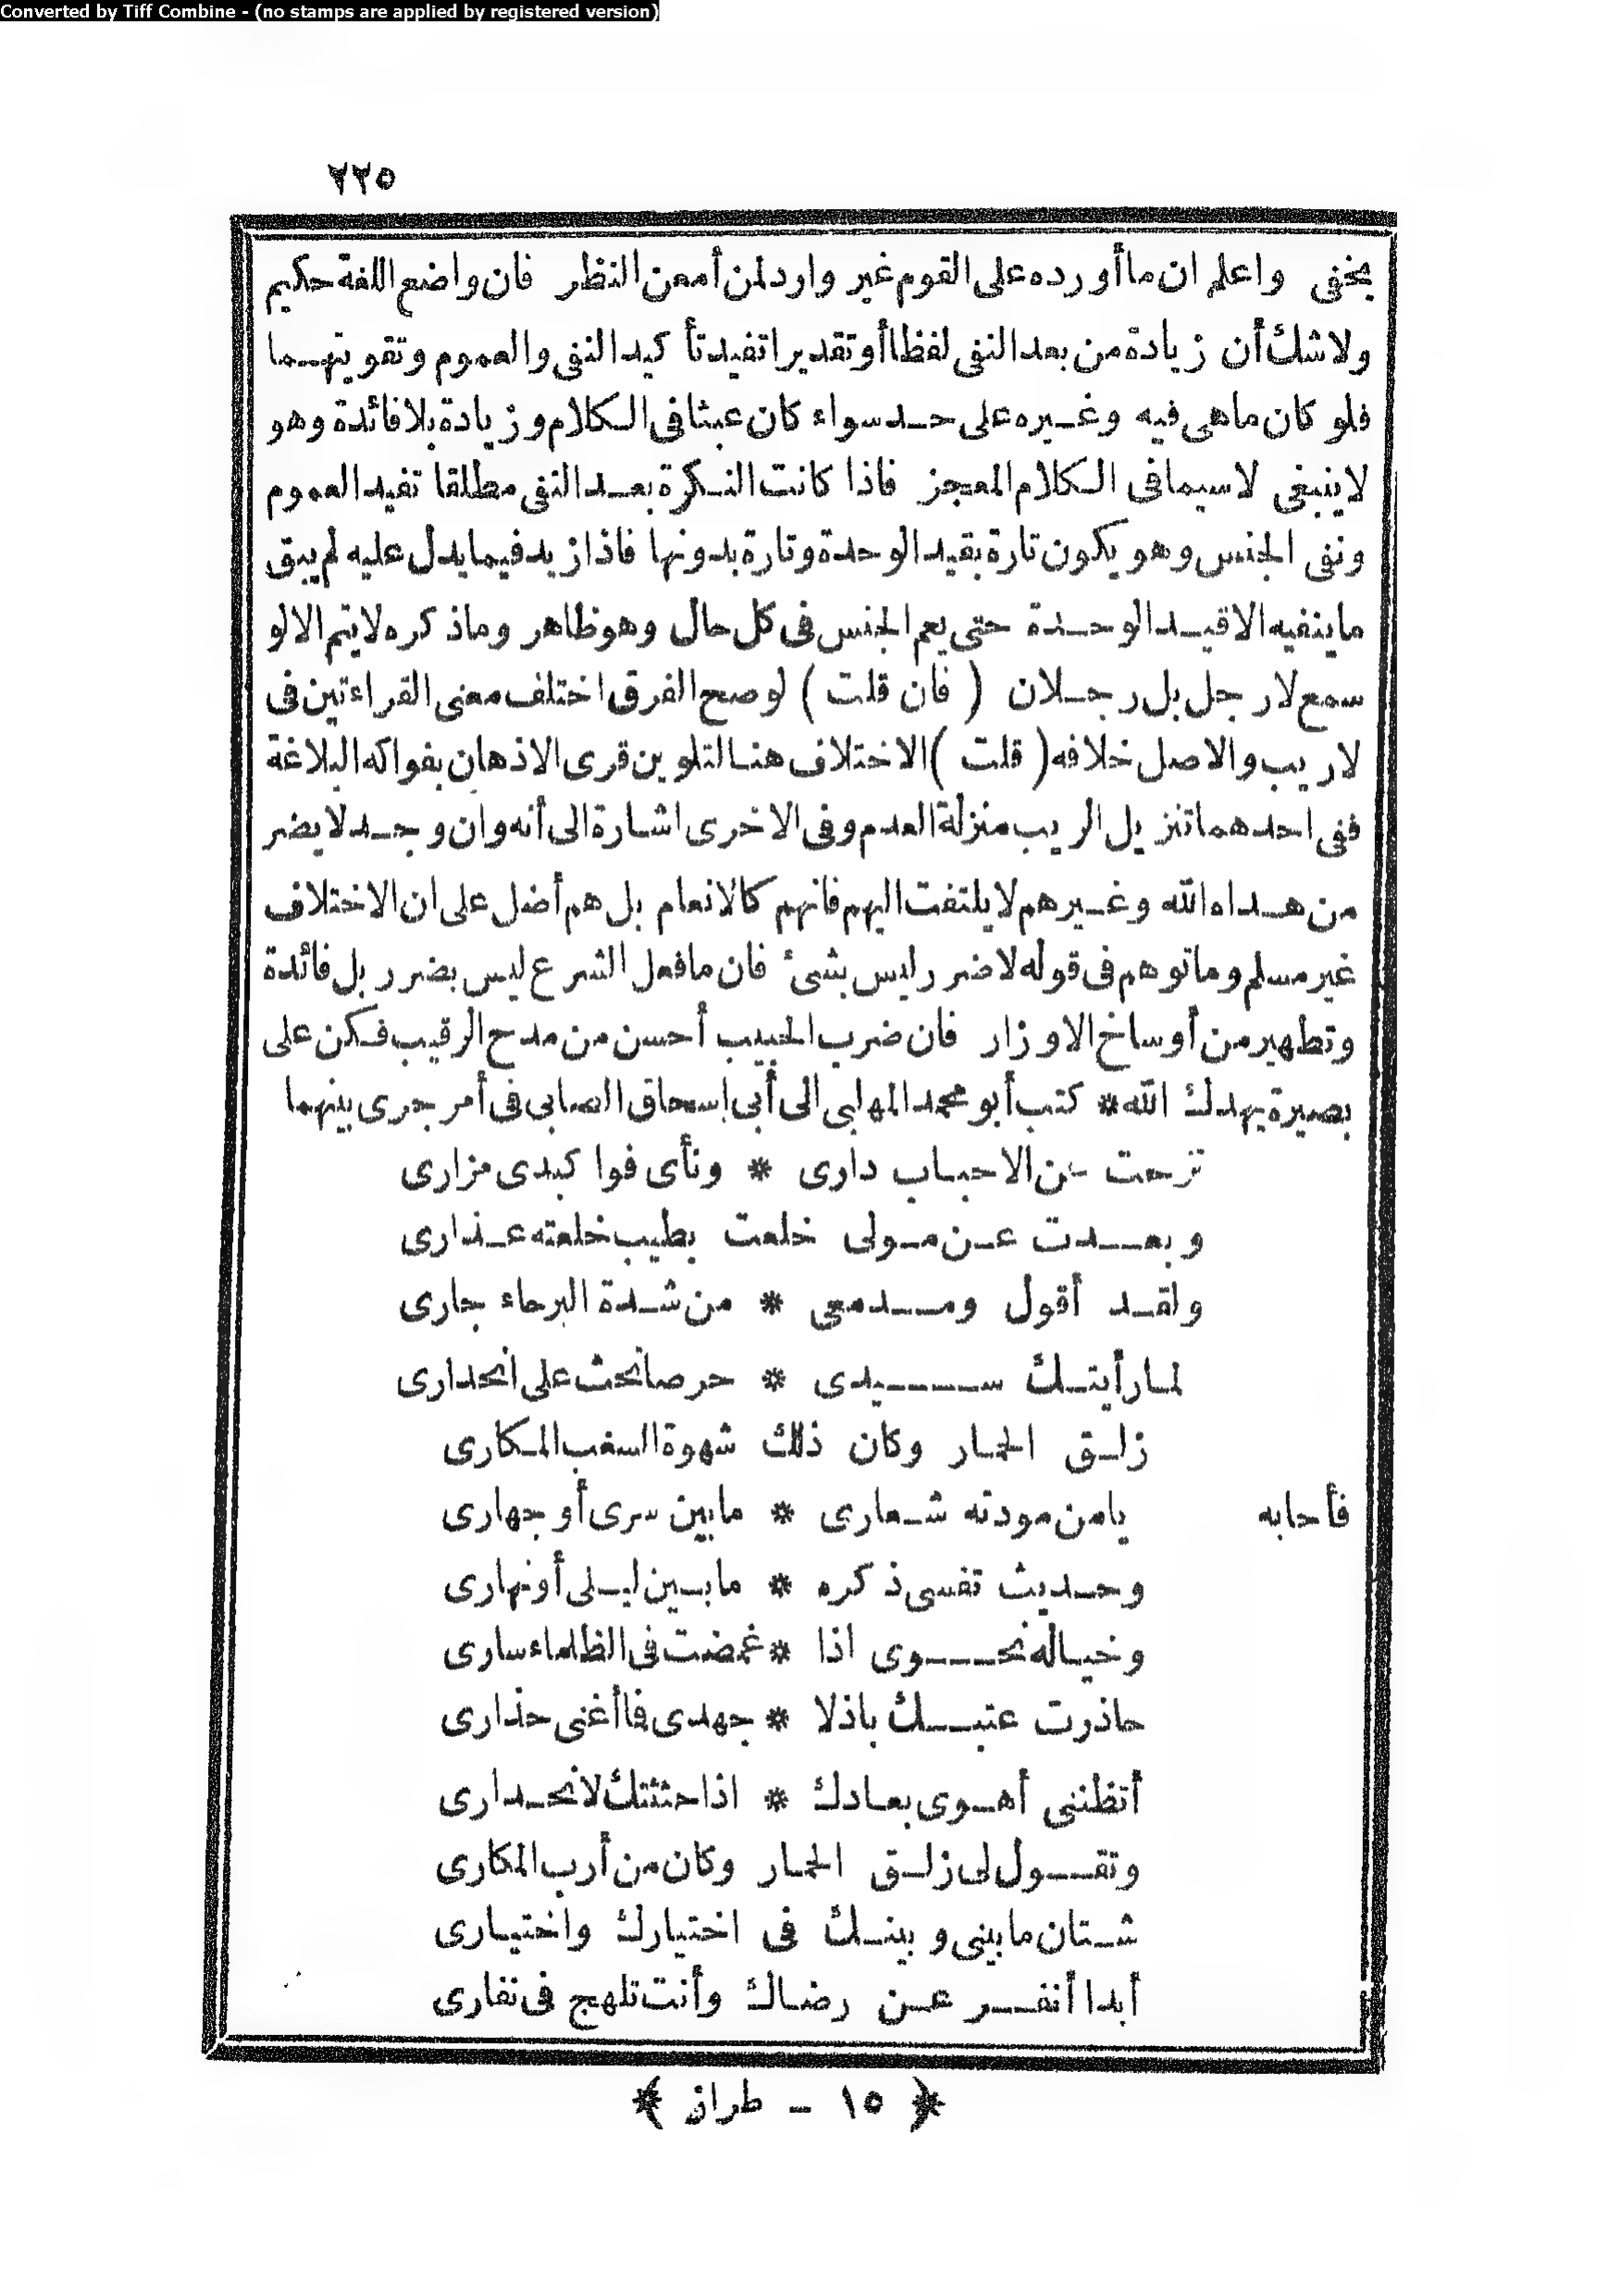 Converted by Tiff Combine - (no stamps are applied by registered version)
٢٢٥
يخفى واعلم ان ما أورده على القوم غير وارد لمن أمعن النظر فان واضع اللغة حكيم
ولا شك أن زيادة من بعد النفى لفظا أو تقديرا تفيد تأكيد النفى والعموم وتقويتهما
فلو كان ما هى فيه وغيره على حد سواء كان عبثا فى الكلام وزيادة بلا فائدة وهو
لا ينبغى لا سيما فى الكلام المعجز فاذا كانت النكرة بعد النفى مطلقا تفيد العموم
ونفى الجنس وهو يكون تارة بقيد الوحدة وتارة بدونها فاذا زيد فيما يدل عليه لم يبق
ما ينفيه الا قيد الوحدة حتى يعم الجنس فى كل حال وهو ظاهر وما ذكره لا يتم الا لو
سمع لا رجل بل رجلان ( فان قلت ) لو صح الفرق اختلف معنى القراءتين فى
لا ريب والاصل خلافه ( قلت ) الاختلاف هنا لتلوين قرى الاذهان بفواكه البلاغة
ففى احدهما تنزيل الريب منزلة العدم وفى الاخرى اشارة الى أنه وان وجد لا يضر
من هداه الله وغيرهم لا يلتفت اليهم فانهم كالانعام بل هم أضل على ان الاختلاف
غير مسلم وما توهم فى قوله لا ضرر ليس بشئ فان ما فعل الشرع ليس بضرر بل فائدة
وتطهير من أوساخ الاوزار فان ضرب الحبيب أحسن من مدح الرقيب فكن على
بصيرة يهدك الله * كتب أبو محمد المهلبى الى أبى إسحاق الصابى فى أمر جرى بينهما
نزحت عن الاحباب دارى * ونأى فوا كبدى مزارى
وبعدت عن مولى خلعت بطيب خلعته عذارى
ولقد أقول ومدمعى * من شدة البرحاء جارى
لما رأيتك سيدى * حرصا تحث على انحدارى
زلق الحمار وكان ذلك شهوة السغب المكارى
فأجابه يا من مودته شعارى * ما بين سرى أو جهارى
وحديث نفسى ذكره * ما بين ليلى أو نهارى
وخياله نحوى اذا * غمضت فى الظلماء سارى
حاذرت عتبك باذلا * جهدى فما أغنى حذارى
أتظننى أهوى بعادك * اذا حثثتك لانحدارى
وتقول لى زلق الحمار وكان من أرب المكارى
شتان ما بينى وبينك فى اختيارك واختيارى
أبدا أنفر عن رضاك وأنت تلهج فى نفارى
﴿ ١٥ - طراز ﴾